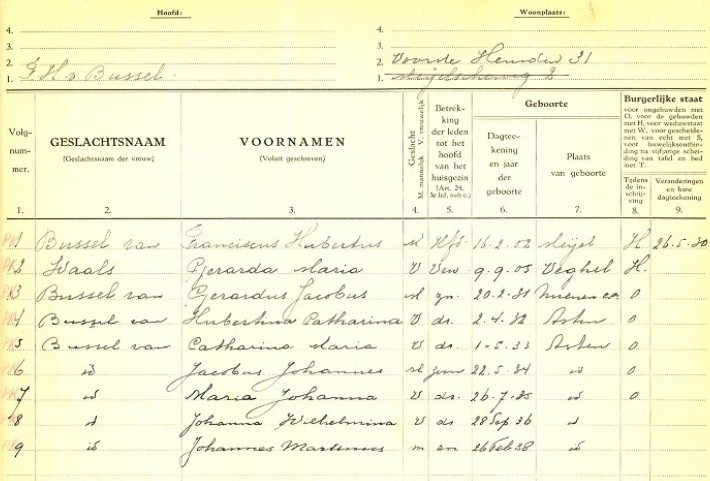 Hoofd: Woonplaats:
4. 4.
3. 3.
2. 2. Voorste Heusden 31
1. F. H. v. Bussel. 1. Meijelscheweg 2
Volg-
num-
mer.
GESLACHTSNAAM
(Geslachtsnaam der vrouw)
VOORNAMEN
(Voluit geschreven)
Geslacht
M. mannelijk V. vrouwelijk
Betrek-
king
der leden
tot het
hoofd
van het
huisgezin
(Art. 24,
3e lid, sub c.)
Geboorte
Dagtee-
kening
en jaar
der
geboorte
Plaats
van geboorte
Burgerlijke staat
voor ongehuwden met
O, voor de gehuwden
met H, voor weduwstaat
met W, voor gescheide-
nen van echt met S,
voor huwelijksontbin-
ding na vijfjarige schei-
ding van tafel en bed
met T.
Tijdens
de in-
schrij-
ving
Veranderingen
en hare
dagteekening
1. 2. 3. 4. 5. 6. 7. 8. 9.
PK1 Bussel van Franciscus Hubertus M Hfd. 16-2-02 Meijel H 26-5-30
PK2 Waals Gerarda Maria V Vrw 9-9-05 Veghel H.
PK3 Bussel van Gerardus Jacobus M zn. 20-2-31 Nuenen c.a. O
PK4 Bussel van Hubertina Catharina V dr. 2-4-32 Asten O
PK5 Bussel van Catharina Maria V dr. 1-5-33 Asten O
PK6 id Jacobus Johannes M zn 22-5-34 id O
PK7 id Maria Johanna V dr. 26-7-35 id O
PK8 id Johanna Wilhelmina V dr 28 Sep 36 id
PK9 id Johannes Martinus m zn 26 Feb 38 id